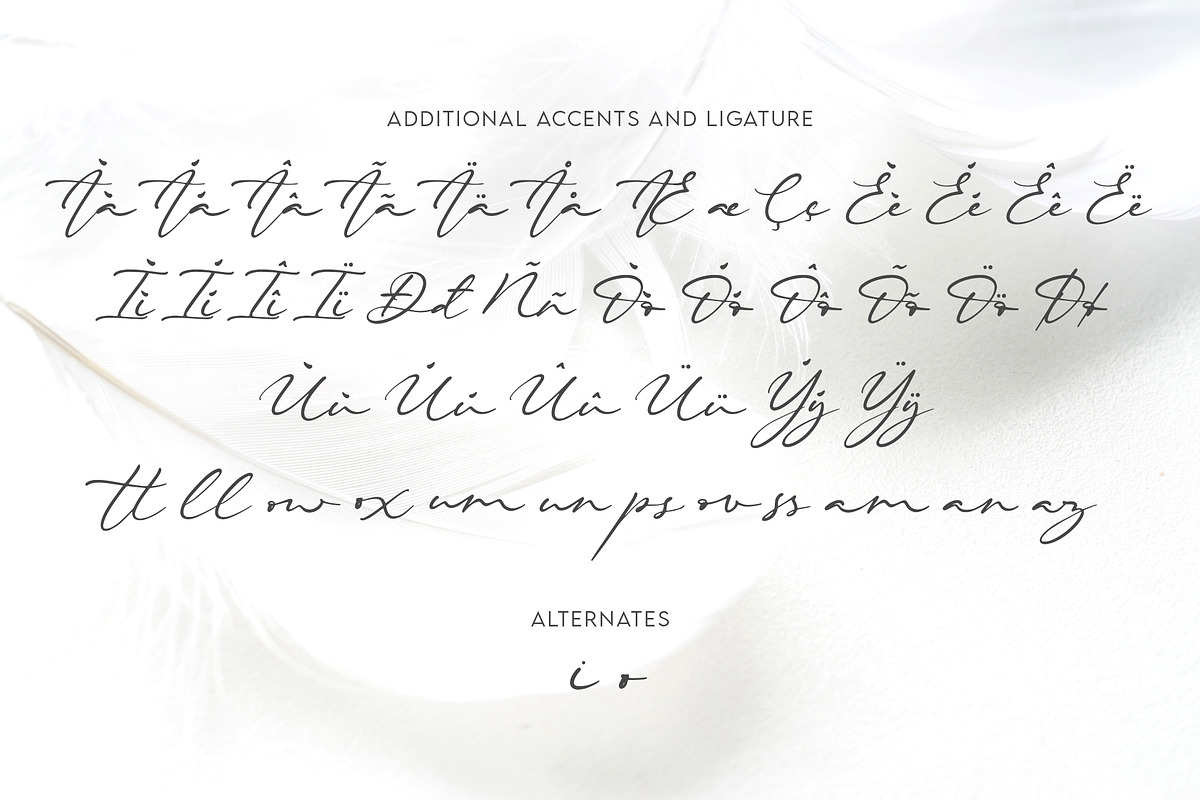 ADDITIONAL ACCENTS AND LIGATURE
Àà Áá Ââ Ãã Ää Åå Æ æ Çç Èè Éé Êê Ëë
Ìì Íí Îî Ïï Đđ Ññ Òò Óó Ôô Õõ Öö Øø
Ùù Úú Ûû Üü Ýý Ÿÿ
tt ll ow ox um un ps ov ss am an az
ALTERNATES
i o